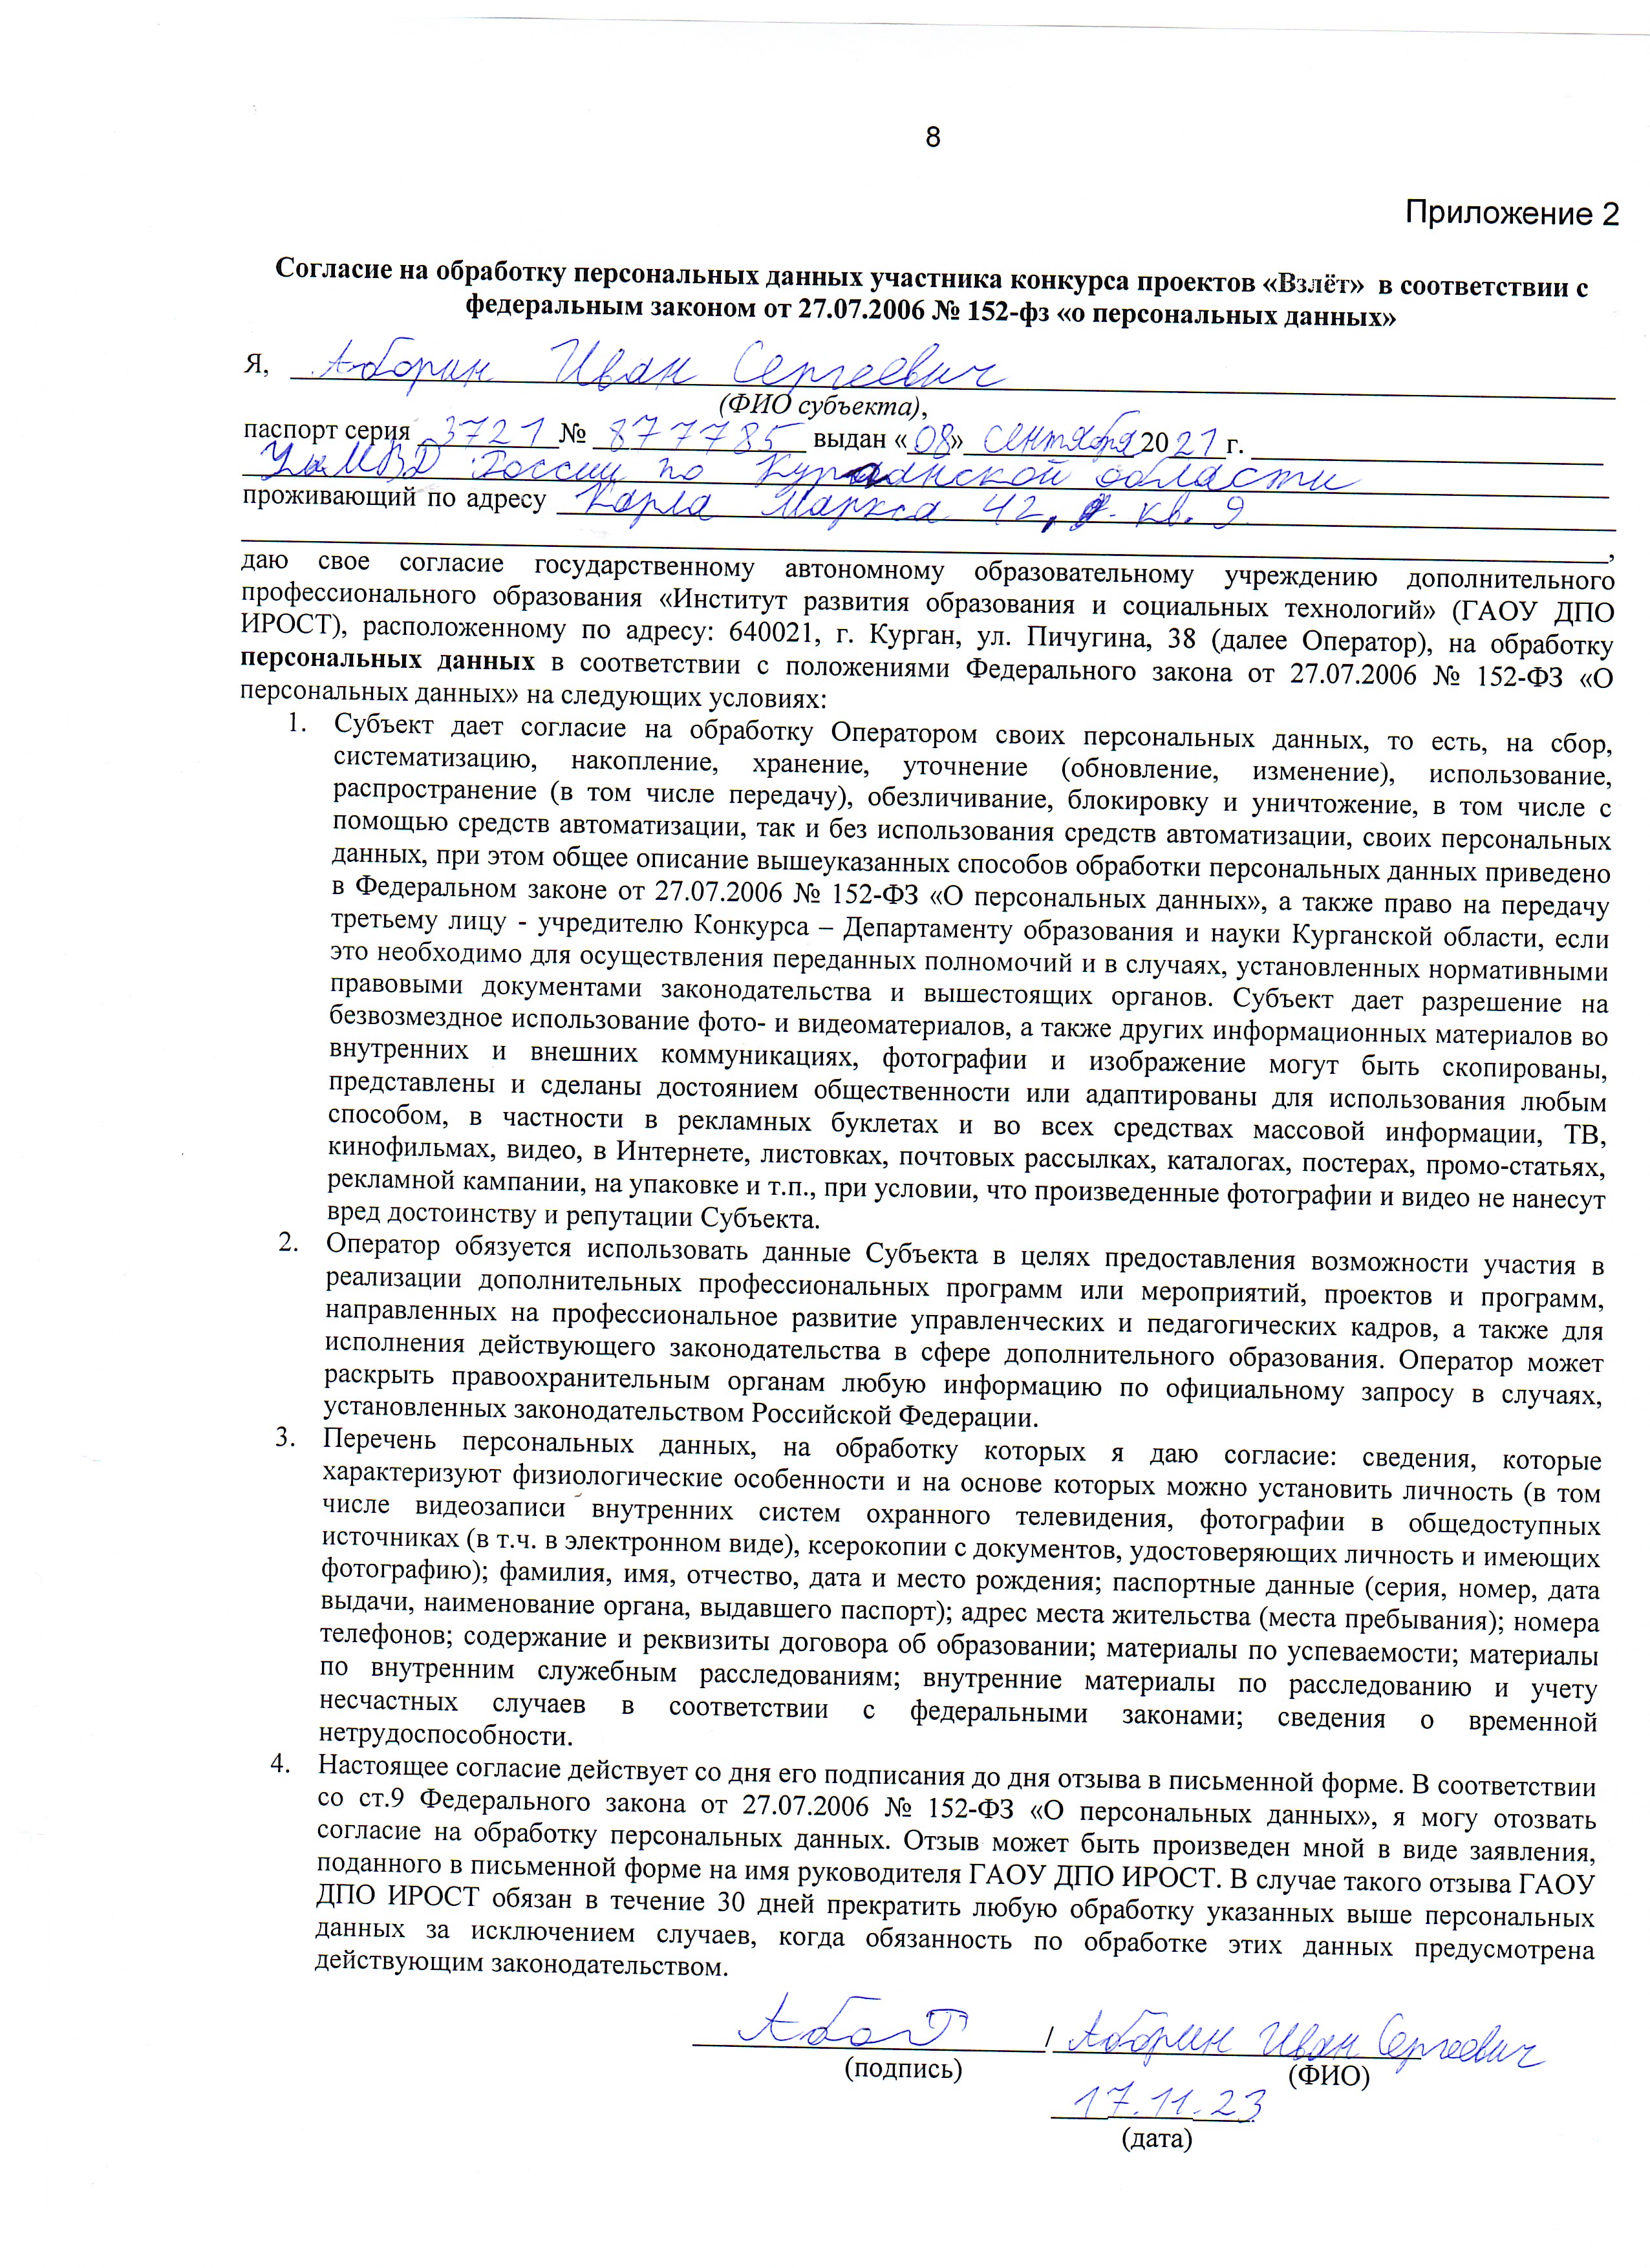 8
Приложение 2
Согласие на обработку персональных данных участника конкурса проектов «Взлёт» в соответствии с
федеральным законом от 27.07.2006 № 152-фз «о персональных данных»
Я, Аборин Иван Сергеевич
(ФИО субъекта),
паспорт серия 3721 № 877785 выдан «08» сентября 2021 г.
УМВД России по Курганской области
проживающий по адресу Карла Маркса 42, кв. 9
,
даю свое согласие государственному автономному образовательному учреждению дополнительного
профессионального образования «Институт развития образования и социальных технологий» (ГАОУ ДПО
ИРОСТ), расположенному по адресу: 640021, г. Курган, ул. Пичугина, 38 (далее Оператор), на обработку
персональных данных в соответствии с положениями Федерального закона от 27.07.2006 № 152-ФЗ «О
персональных данных» на следующих условиях:
1. Субъект дает согласие на обработку Оператором своих персональных данных, то есть, на сбор,
систематизацию, накопление, хранение, уточнение (обновление, изменение), использование,
распространение (в том числе передачу), обезличивание, блокировку и уничтожение, в том числе с
помощью средств автоматизации, так и без использования средств автоматизации, своих персональных
данных, при этом общее описание вышеуказанных способов обработки персональных данных приведено
в Федеральном законе от 27.07.2006 № 152-ФЗ «О персональных данных», а также право на передачу
третьему лицу - учредителю Конкурса – Департаменту образования и науки Курганской области, если
это необходимо для осуществления переданных полномочий и в случаях, установленных нормативными
правовыми документами законодательства и вышестоящих органов. Субъект дает разрешение на
безвозмездное использование фото- и видеоматериалов, а также других информационных материалов во
внутренних и внешних коммуникациях, фотографии и изображение могут быть скопированы,
представлены и сделаны достоянием общественности или адаптированы для использования любым
способом, в частности в рекламных буклетах и во всех средствах массовой информации, ТВ,
кинофильмах, видео, в Интернете, листовках, почтовых рассылках, каталогах, постерах, промо-статьях,
рекламной кампании, на упаковке и т.п., при условии, что произведенные фотографии и видео не нанесут
вред достоинству и репутации Субъекта.
2. Оператор обязуется использовать данные Субъекта в целях предоставления возможности участия в
реализации дополнительных профессиональных программ или мероприятий, проектов и программ,
направленных на профессиональное развитие управленческих и педагогических кадров, а также для
исполнения действующего законодательства в сфере дополнительного образования. Оператор может
раскрыть правоохранительным органам любую информацию по официальному запросу в случаях,
установленных законодательством Российской Федерации.
3. Перечень персональных данных, на обработку которых я даю согласие: сведения, которые
характеризуют физиологические особенности и на основе которых можно установить личность (в том
числе видеозаписи внутренних систем охранного телевидения, фотографии в общедоступных
источниках (в т.ч. в электронном виде), ксерокопии с документов, удостоверяющих личность и имеющих
фотографию); фамилия, имя, отчество, дата и место рождения; паспортные данные (серия, номер, дата
выдачи, наименование органа, выдавшего паспорт); адрес места жительства (места пребывания); номера
телефонов; содержание и реквизиты договора об образовании; материалы по успеваемости; материалы
по внутренним служебным расследованиям; внутренние материалы по расследованию и учету
несчастных случаев в соответствии с федеральными законами; сведения о временной
нетрудоспособности.
4. Настоящее согласие действует со дня его подписания до дня отзыва в письменной форме. В соответствии
со ст.9 Федерального закона от 27.07.2006 № 152-ФЗ «О персональных данных», я могу отозвать
согласие на обработку персональных данных. Отзыв может быть произведен мной в виде заявления,
поданного в письменной форме на имя руководителя ГАОУ ДПО ИРОСТ. В случае такого отзыва ГАОУ
ДПО ИРОСТ обязан в течение 30 дней прекратить любую обработку указанных выше персональных
данных за исключением случаев, когда обязанность по обработке этих данных предусмотрена
действующим законодательством.
/ Аборин Иван Сергеевич
(подпись) (ФИО)
17.11.23
(дата)